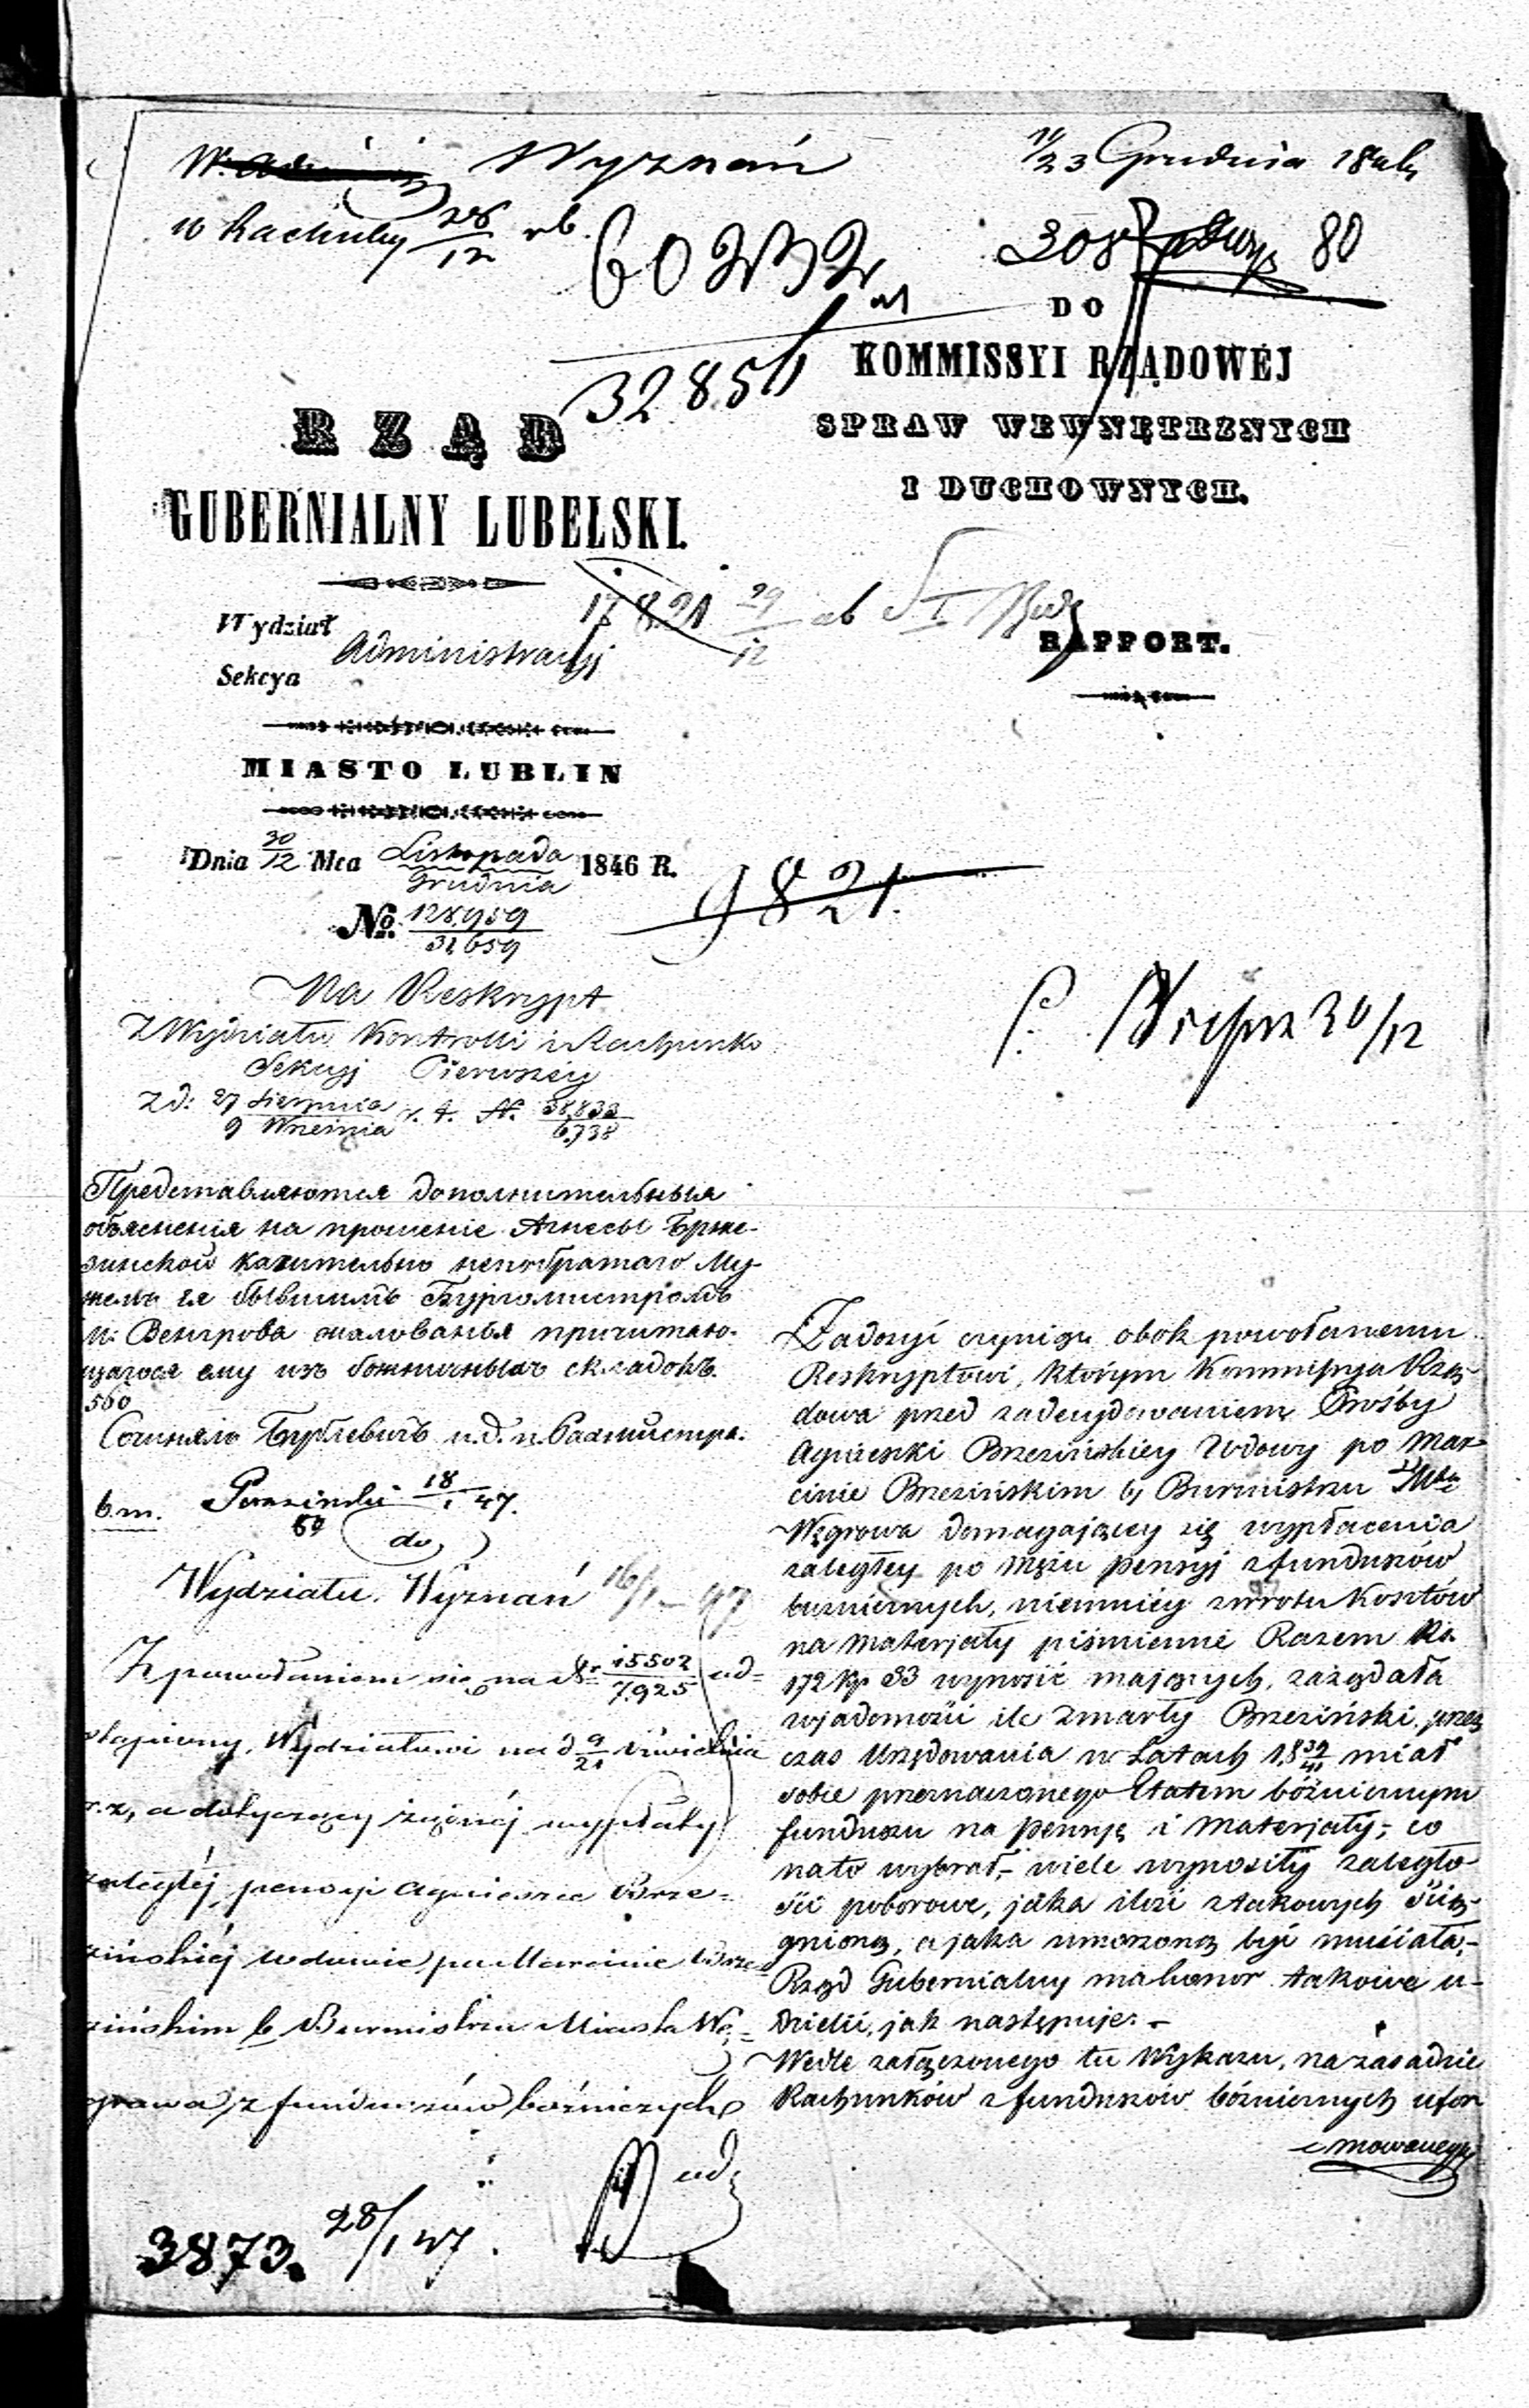 Wyznań
11/23 Grudnia 1846
w Rachuby 28/12 rb.
60232
308
80
32854
DO
KOMMISSYI RZĄDOWÉJ
SPRAW WEWNĘTRZNYCH
I DUCHOWNYCH.
RZĄD
GUBERNIALNY LUBELSKI.
17821 29/12
Wydział
Administracyj
Sekcya
RAPPORT.
MIASTO LUBLIN
Dnia 30/12 Mca Listopada/Grudnia 1846 R.
9821.
No. 128,959/31,659
30/12
Na Reskrypt
Z Wydziału Kontrolli i Rachunko
Sekcyj Pierwszéy
z d: 27 Sierpnia/9 Września r. t. N. 38,833/6,738
Представляются дополнительныя
объясненія на прошеніе Агнесы Брже-
зинской касательно непобратаго Му-
жемъ ея бывшимъ Бургомистромъ
м: Венгрова жалованья причитаю-
щагося ему изъ божничныхъ складокъ.
560
18/1 47.
do
Wydziału Wyznań 16/1 – 47
Z powołaniem się na Nr 15502/7925 od=
stąpiony Wydziałowi na d 9/21 Kwietnia
r. z, a dotyczący żądanéj wypłaty
zaległéj pensyi Agnieszce Brze=
zińskiéj wdowie po Marcinie Brze=
zińskim b Burmistrzu Miasta Wę=
growa, z funduszów bóżniczych
3873. 28/1 47.
Zadosyć czyniąc obok powołanemu
Reskryptowi, którym Kommissya Rzą-
dowa przed zadecydowaniem Prośby
Agnieszki Brzezińskiey Wdowy po Mar-
cinie Brzezińskim b, Burmistrzu Mta
Węgrowa domagającey się wypłacenia
zaległey po Mężu pensyj z funduszów
bużniczných, niemniéy zwrotu kosztów
na Materjały piśmienne Razem Rs.
172 kp 33 wynosić mających, zażądała
wjadomości ile zmarły Brzeziński przez
czas Urzędowania w Latach 1839/41 miał
sobie przeznaczonego Etatem bóżnicznym
funduszu na pensyę i Materjały; co
nato wybrał, wiele wynosiły zaległo-
ści poborowe, jaka ilość z takowych ścią-
gnioną, a jaka umorzoną być musiała,-
Rząd Gubernialny ma honor takowe u-
dzielić, jak następuje: -
Wedle załączonego tu Wykazu, na zasadzie
Rachunków z funduszów bóżnicznych ufor
mowanego